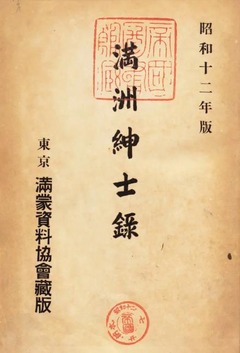 昭和十二年版
満洲紳士錄
東京 満蒙資料協會藏版